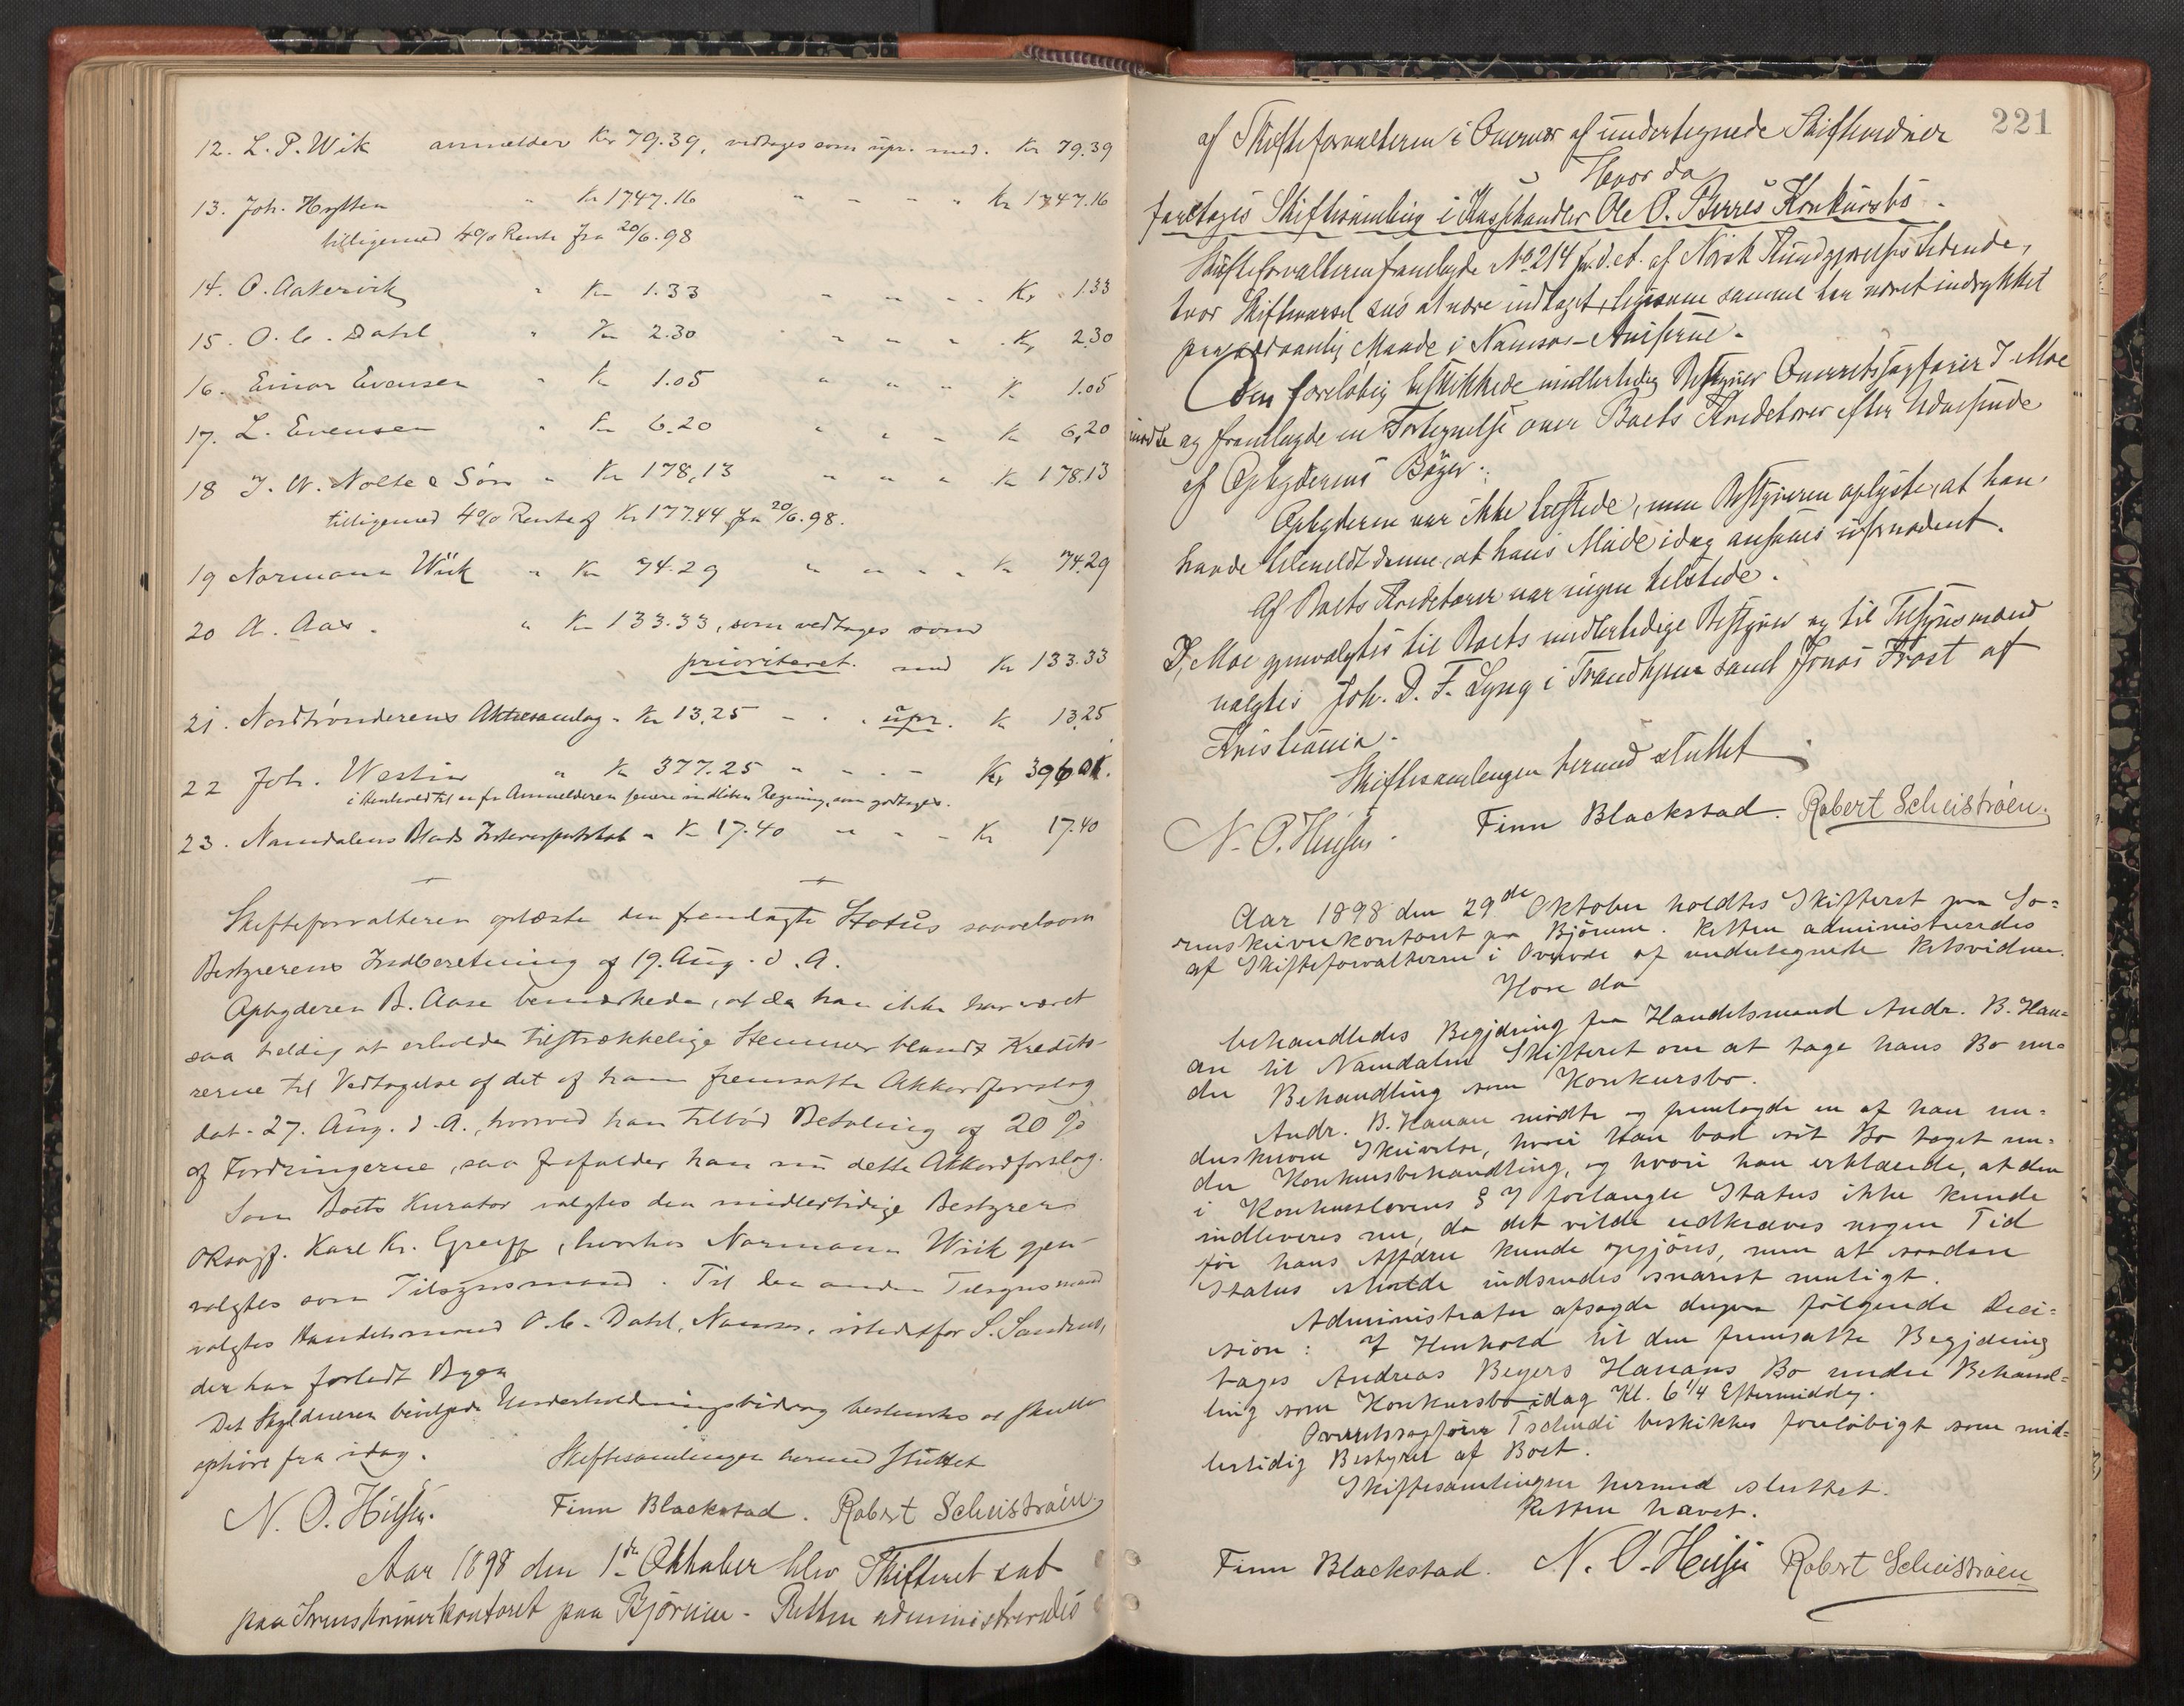 12. L. P. Wik anmelder Kr 79.39, vedtages som upr. med. Kr 79.39
13. Joh. Hytten " Kr 1747.16 " " " " Kr 1747.16
tilligemed 4% Rente fra 20/6.98
14. O. Aakervik " Kr 1.33 " " " " Kr 1.33
15. O. C. Dahl " Kr 2.30 " " " " Kr 2.30
16. Einar Evensen " Kr 1.05 " " " Kr 1.05
17. L. Evensen " Kr 6.20 " " " Kr 6,20
18 J. W. Nolte & Søn " Kr 178,13 " " " Kr 178.13
tilligemed 4% Rente af Kr 177.44 fra 20/6.98.
19 Normann Wiik " Kr 74.29 " " " " Kr 74.29
20 A. Aas. " Kr 133.33, som vedtages som
prioriteret med Kr 133.33
21. Nordtrønderens Aktiesamlag " Kr 13,25 " " " upr. Kr 13,25
22 Joh. Westin " Kr 377.25 " " " Kr
i Henhold til en fra Anmelderen senere indkommen Regning, som godtages.
23. Namdalens Blads Interessentskab " Kr 17.40 " " " Kr 17.40
Skifteforvalteren oplæste den fremlagte Status saavelsom
Bestyrerens Indberetning af 19. Aug. d. A.
Opbyderen B. Aase bemærkede, at da han ikke har været
saa heldig at erholde tilstrækkelige Stemmer blandt Kredito-
rerne til Vedtagelse af det af ham fremsatte Akkordforslag
dat. 27. Aug. d. A., hvorved han tilbød Betaling af 20 %
af Fordringerne, saa frafalder han nu dette Akkordforslag.
Som Boets Kurator valgtes den midlertidige Bestyrer
Oksagf. Karl Kr. Greiff, hvorhos Normann Wiik gjen-
valgtes som Tilsynsmand. Til den anden Tilsynsmand
valgtes Handelsmand O. C. Dahl, Namsos, istedetfor S.
der har forladt Byen
Det Skyldneren bevilgede Underholdningsbidrag bestemtes at skulle
ophøre fra idag.
Skiftesamlingen hermed sluttet
N. O. Finn Blackstad. Robert Scheistrøen
Aar 1898 den 1de Oktober blev Skifteret sat
paa Sorenskriverkontoret paa Bjørum. Retten administreredes
221
af Skifteforvalteren i Overvær af undertegnede Skiftevidner
Hvor da
foretoges Skiftesamling i Handler Ole O. Konkursbo.
Skifteforvalteren fremlagde No 214 d. A. af Norsk Kundgjørelses Tidende,
hvor Skiftevarsel saaes at være indtaget, ligesom samme har været indrykket
paa Maade i Namsos-Aviserne.
Den foreløbig beskikkede midlertidig Bestyrer Overretssagfører J. Moe
mødte og fremlagde en Fortegnelse over Boets Kreditorer efter Udvisende
af Opbyderens Bøger.
Opbyderen var ikke tilstede, men Bestyreren oplyste, at han
havde tilmeldt denne, at hans Møde idag ansaaes ufornødent.
Af Boets Kreditorer var ingen tilstede.
J. Moe gjenvalgtes til Boets midlertidige Bestyrer og til Tilsynsmænd
valgtes Joh. D. F. Lyng i Trondhjem samt Jonas Frost af
Kristiania.
Skiftesamlingen hermed sluttet
N. O. Finn Blackstad. Robert Scheistrøen.
Aar 1898 den 29de Oktober holdtes Skifteret paa So-
renskriverkontoret paa Bjørum. Retten administreredes
af Skifteforvalteren i Overvær af undertegnede Retsvidner.
Hvor da
behandledes Begjæring fra Handelsmand Andr. B. Han-
an til Namdalens Skifteret om at tage hans Bo un-
der Behandling som Konkursbo.
Andr. B. Hanan mødte og fremlagde en af ham un-
derskreven Skrivelse, hvori han bad sit Bo taget un-
der Konkursbehandling, og hvori han erklærede, at den
i Konkurslovens § 7 forlangte Status ikke kunde
indleveres nu, da det vilde udkræves nogen Tid
før hans Affærer kunde opgjøres, men at saadan
Status skulde indsendes snarest muligt.
Administrator afsagde derpaa følgende Deci-
sion: I Henhold til den fremsatte Begjæring
tages Andreas Beyers Hanans Bo under Behand-
ling som Konkursbo idag Kl. 6 1/4 Eftermiddag.
Overretssagfører Tschudi beskikkes foreløbigt som mid-
lertidig Bestyrer af Boet.
Skiftesamlingen hermed sluttet.
Retten hævet.
Finn Blackstad. N. O. Robert Scheistrøen